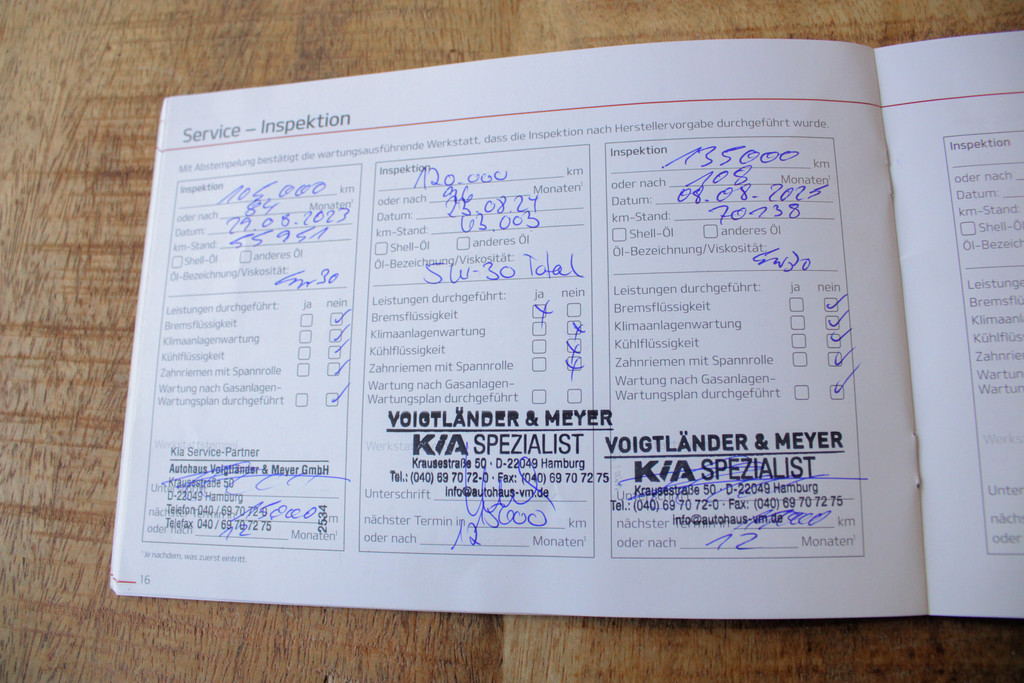 Service – Inspektion
Mit Abstempelung bestätigt die wartungsausführende Werkstatt, dass die Inspektion nach Herstellervorgabe durchgeführt wurde.
Inspektion 105.000 km
oder nach 84 Monaten¹
Datum: 29.08.2023
km-Stand: 55951
Shell-Öl anderes Öl
Öl-Bezeichnung/Viskosität:
5W30
Leistungen durchgeführt: ja nein
Bremsflüssigkeit
Klimaanlagenwartung
Kühlflüssigkeit
Zahnriemen mit Spannrolle
Wartung nach Gasanlagen-
Wartungsplan durchgeführt
Werkstattstempel
Kia Service-Partner
Autohaus Voigtländer & Meyer GmbH
Krausestraße 50
D-22049 Hamburg
Telefon 040 / 69 70 72-0
Telefax 040 / 69 70 72 75
2534
km
oder nach 12 Monaten¹
¹Je nachdem, was zuerst eintritt.
16
Inspektion 120.000 km
oder nach 96 Monaten¹
Datum: 23.08.24
km-Stand: 63.003
Shell-Öl anderes Öl
Öl-Bezeichnung/Viskosität:
5W-30 Total
Leistungen durchgeführt: ja nein
Bremsflüssigkeit
Klimaanlagenwartung
Kühlflüssigkeit
Zahnriemen mit Spannrolle
Wartung nach Gasanlagen-
Wartungsplan durchgeführt
VOIGTLÄNDER & MEYER
KIA SPEZIALIST
Krausestraße 50 · D-22049 Hamburg
Tel.: (040) 69 70 72-0 · Fax: (040) 69 70 72 75
Unterschrift info@autohaus-vm.de
nächster Termin in km
oder nach 12 Monaten¹
Inspektion 135000 km
oder nach 108 Monaten¹
Datum: 08.08.2025
km-Stand: 70138
Shell-Öl anderes Öl
Öl-Bezeichnung/Viskosität:
5W30
Leistungen durchgeführt: ja nein
Bremsflüssigkeit
Klimaanlagenwartung
Kühlflüssigkeit
Zahnriemen mit Spannrolle
Wartung nach Gasanlagen-
Wartungsplan durchgeführt
VOIGTLÄNDER & MEYER
KIA SPEZIALIST
Krausestraße 50 · D-22049 Hamburg
Tel.: (040) 69 70 72-0 · Fax: (040) 69 70 72 75
info@autohaus-vm.de
nächster Termin in km
oder nach 12 Monaten¹
Inspektion
oder nach
Datum:
km-Stand:
Shell-Öl
Öl-Bezeich
Leistungen
Bremsflüs
Klimaanla
Kühlflüss
Zahnriem
Wartung
Wartun
Werks
Unter
nächs
oder